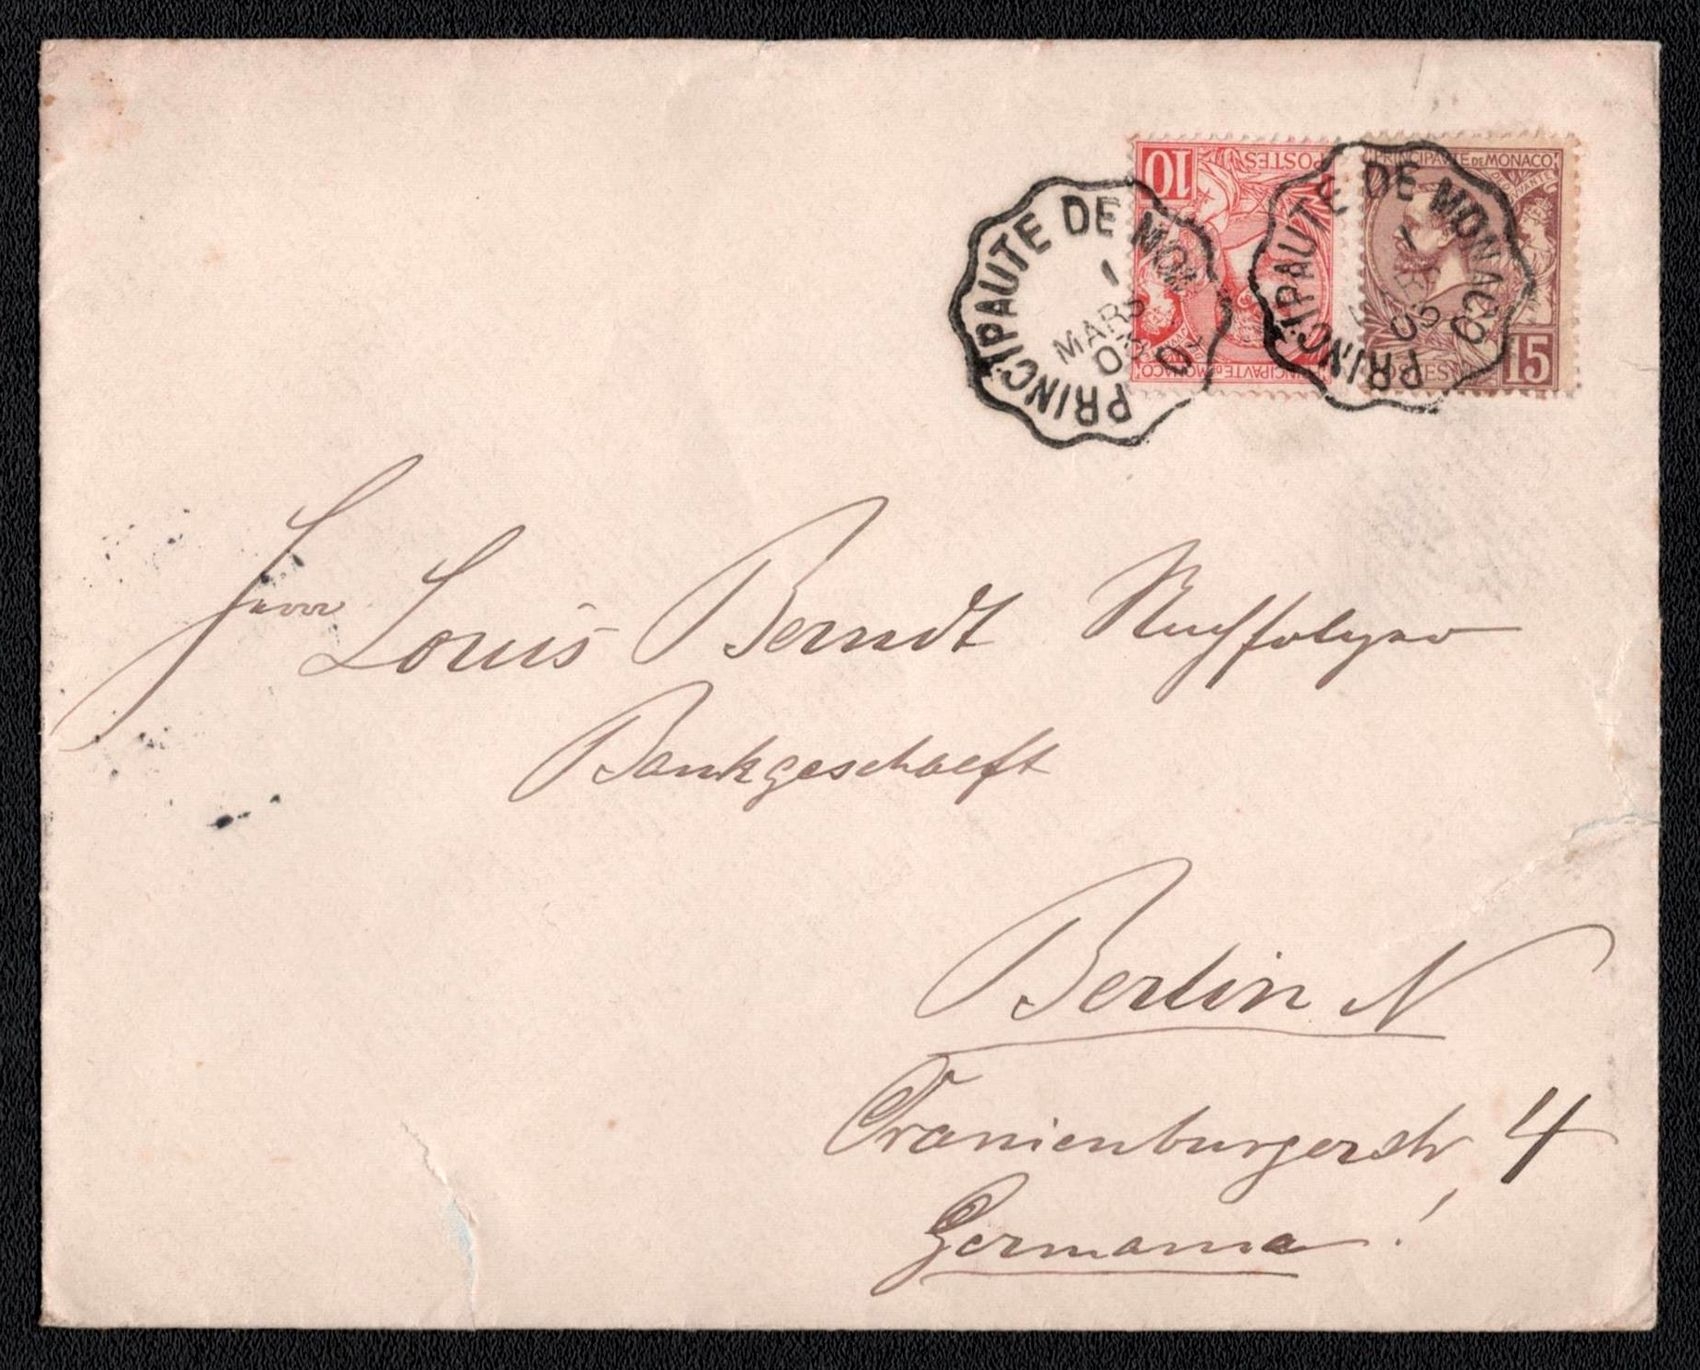 POSTES
10
PRINCIPAVTE DE MONACO
PRINCIPAVTE DE MONACO
POSTES
15
PRINCIPAUTE DE MONACO
1
MARS
05
PRINCIPAUTE DE MONACO
1
MARS
05
Herrn Louis Berndt Nachfolger
Bankgeschaeft
Berlin N
Oranienburgerstr 4
Germania!